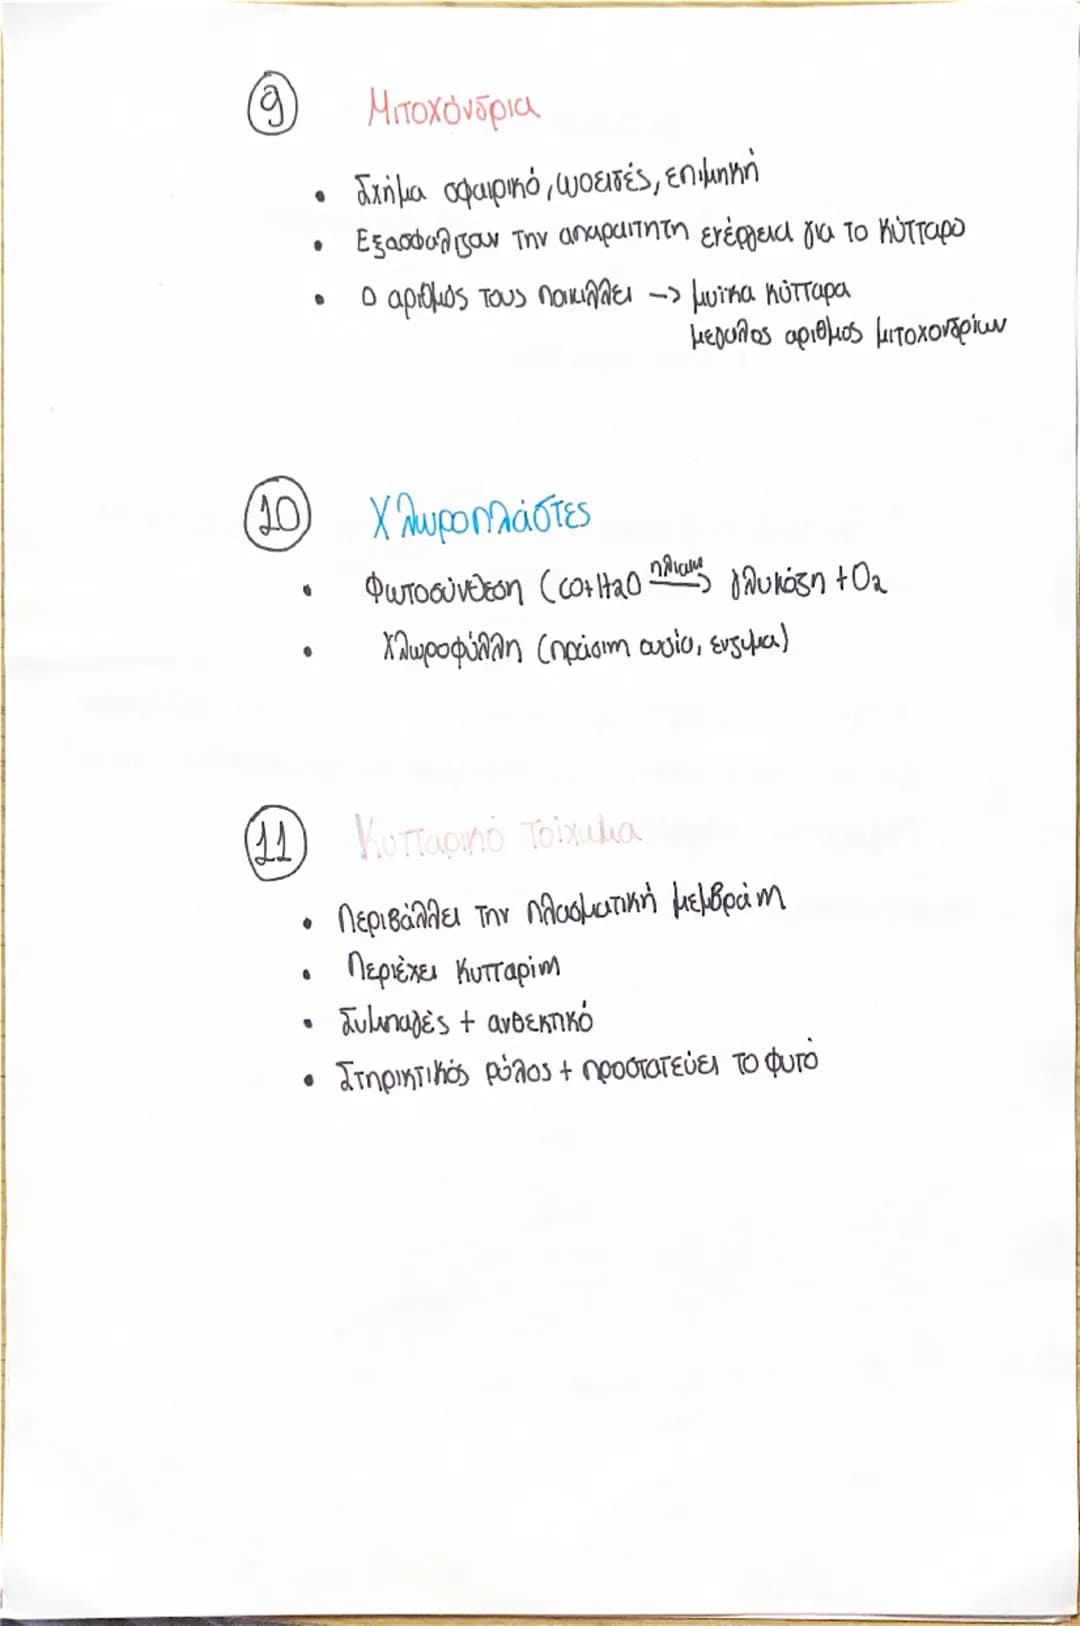 9 Μιτοχόνδρια
• Σχήμα σφαιρικό, ωοειδές, επιμηκή
• Εξασφαλίζουν την απαραίτητη ενέργεια για το κύτταρο
• Ο αριθμός τους ποικίλλει -> μυϊκα κύτταρα
μεγαλος αριθμος μιτοχονδρίων
10 Χλωροπλάστες
• Φωτοσύνθεση (CO+H2O ηλιακη -> γλυκόζη + O2
• Χλωροφύλλη (πράσινη ουσία, ενζυμα)
11 Κυτταρικό τοίχωμα
• Περιβάλλει την πλασματική μεμβράνη
• Περιέχει κυτταρίνη
• Συμπαγές + ανθεκτικό
• Στηρικτικός ρόλος + προστατεύει το φυτό